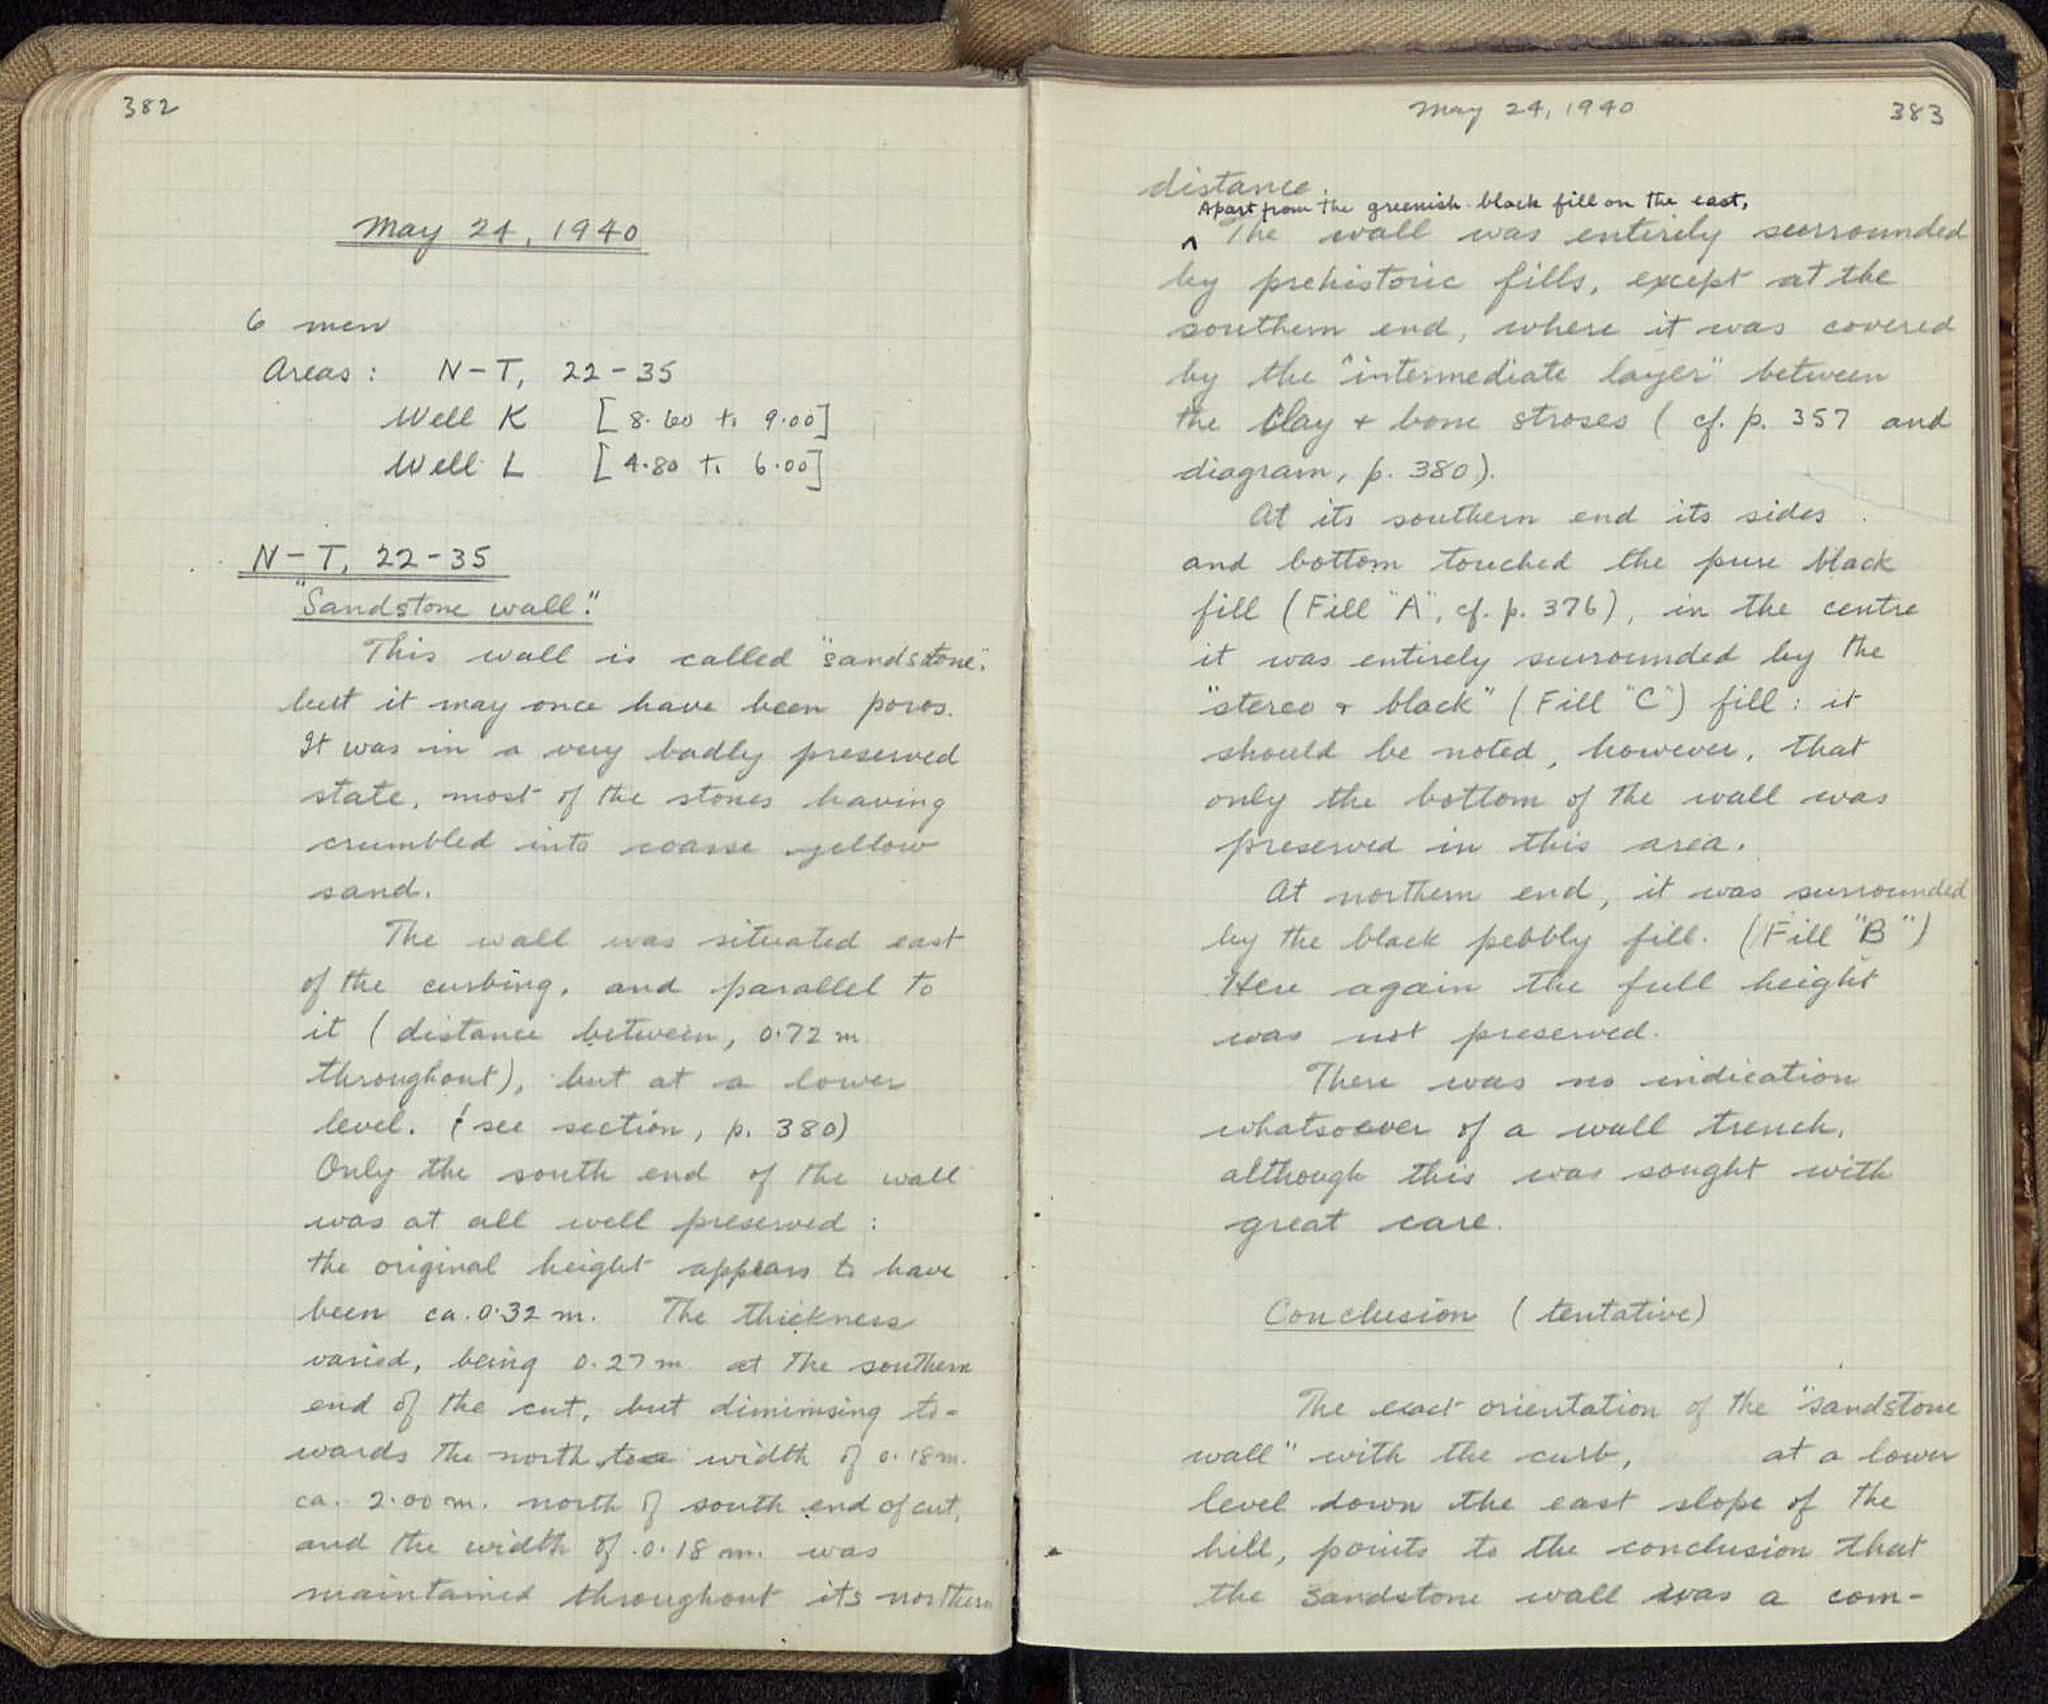 382
May 24, 1940
6 men
Areas: N-T, 22-35
Well K [8.60 to 9.00]
Well L [4.80 to 6.00]
N-T, 22-35
"Sandstone wall".
This wall is called "sandstone".
but it may once have been poros.
It was in a very badly preserved
state, most of the stones having
crumbled into coarse yellow
sand.
The wall was situated east
of the curbing, and parallel to
it (distance between, 0.72 m
throughout), but at a lower
level. (see section, p. 380)
Only the south end of the wall
was at all well preserved:
the original height appears to have
been ca. 0.32 m. The thickness
varied, being 0.27 m at the southern
end of the cut, but diminising to-
wards the north to a width of 0.18 m.
ca. 2.00 m. north of south end of cut,
and the width of 0.18 m. was
maintained throughout its northern
May 24, 1940
383
distance.
Apart from the greenish black fill on the east,
^ The wall was entirely surrounded
by prehistoric fills, except at the
southern end, where it was covered
by the "intermediate layer" between
the Clay + bone stroses (cf. p. 357 and
diagram, p. 380).
At its southern end its sides
and bottom touched the pure black
fill (Fill "A", cf. p. 376), in the centre
it was entirely surrounded by the
"stereo + black" (Fill "C") fill: it
should be noted, however, that
only the bottom of the wall was
preserved in this area.
At northern end, it was surrounded
by the black pebbly fill. (Fill "B")
Here again the full height
was not preserved.
There was no indication
whatsoever of a wall trench,
although this was sought with
great care.
Conclusion (tentative)
The exact orientation of the "sandstone
wall" with the curb, at a lower
level down the east slope of the
hill, points to the conclusion that
the sandstone wall was a com-